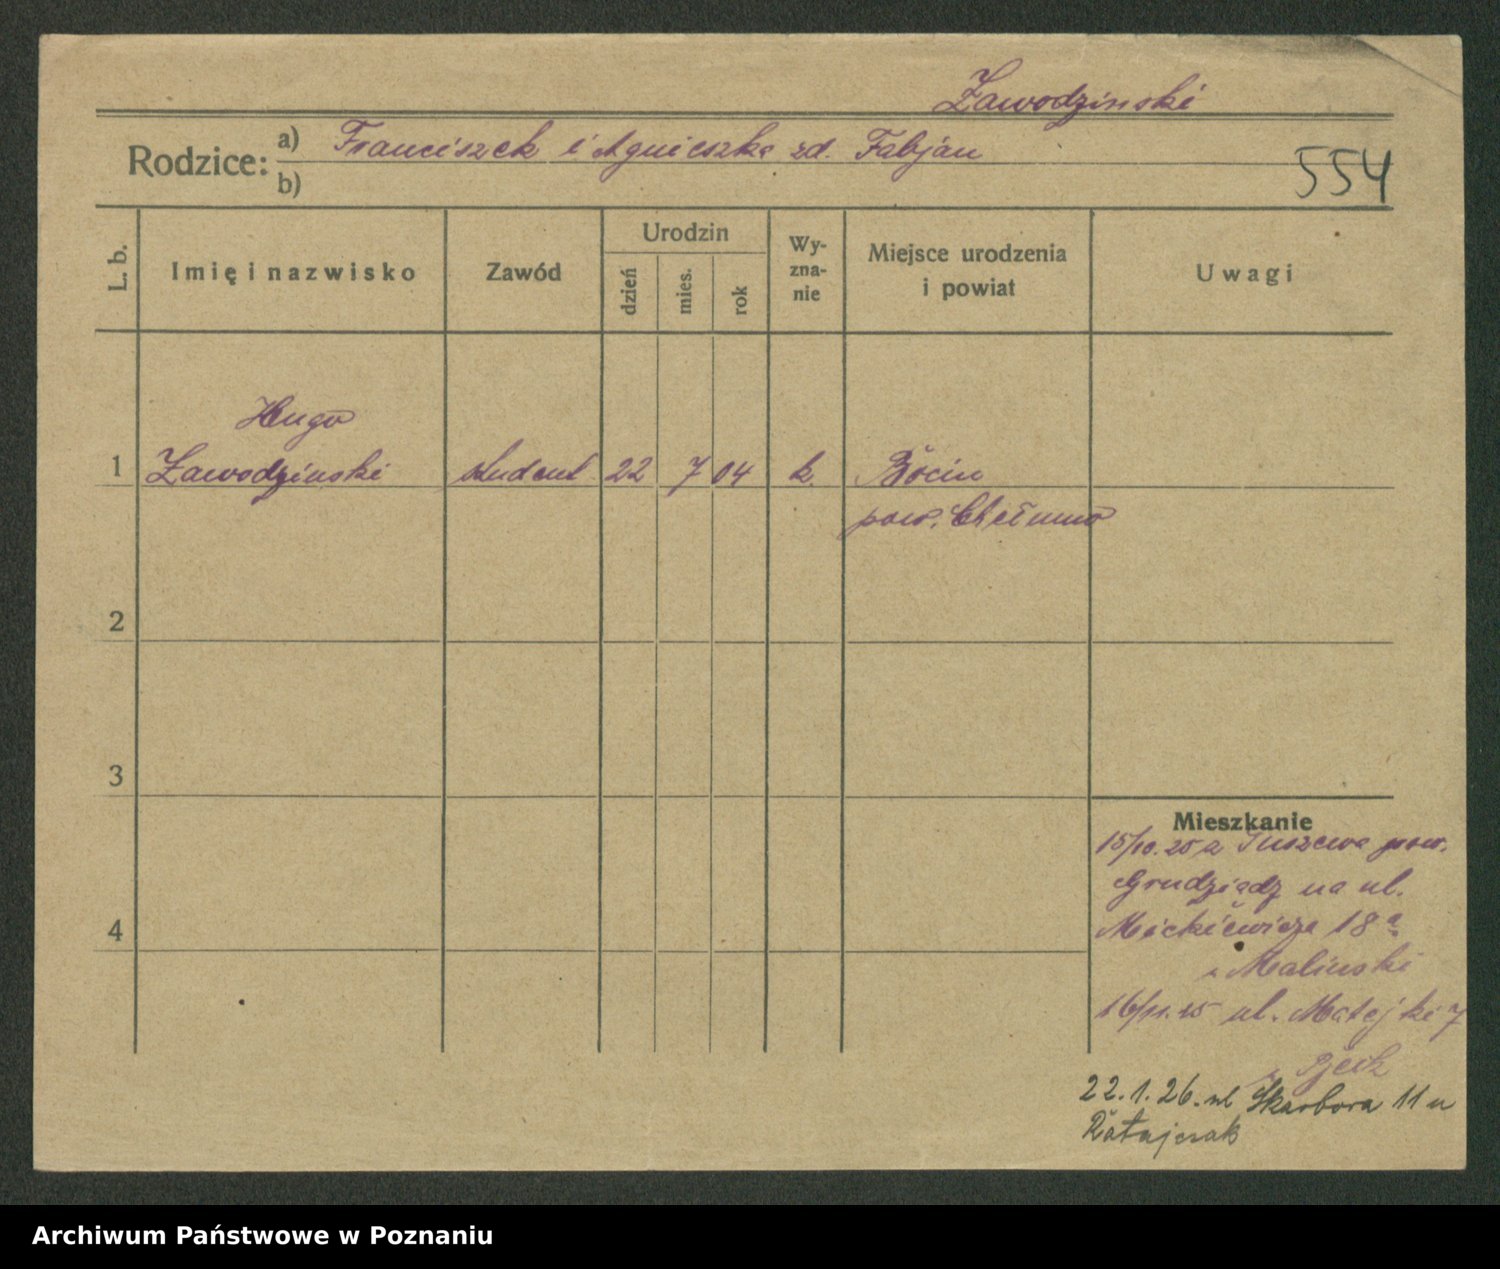 Zawodzinski
Rodzice: a) Franciszek i Agnieszka zd. Fabjan
b)
554
L. b.
Imię i nazwisko
Zawód
Urodzin
dzień
mies.
rok
Wy-
zna-
nie
Miejsce urodzenia
i powiat
Uwagi
Hugo
1 Zawodzinski student 22 7 04 k. Bócin
pow. Chełmno
2
3
4
Mieszkanie
15/10.25 z Tuszewa pow.
Grudziądz na ul.
Mickiewicza 18a
u Malinski
16/11.25 ul. Matejki 7
22.1.26. ul Skarbora 11 u
Ratajczak
Archiwum Państwowe w Poznaniu